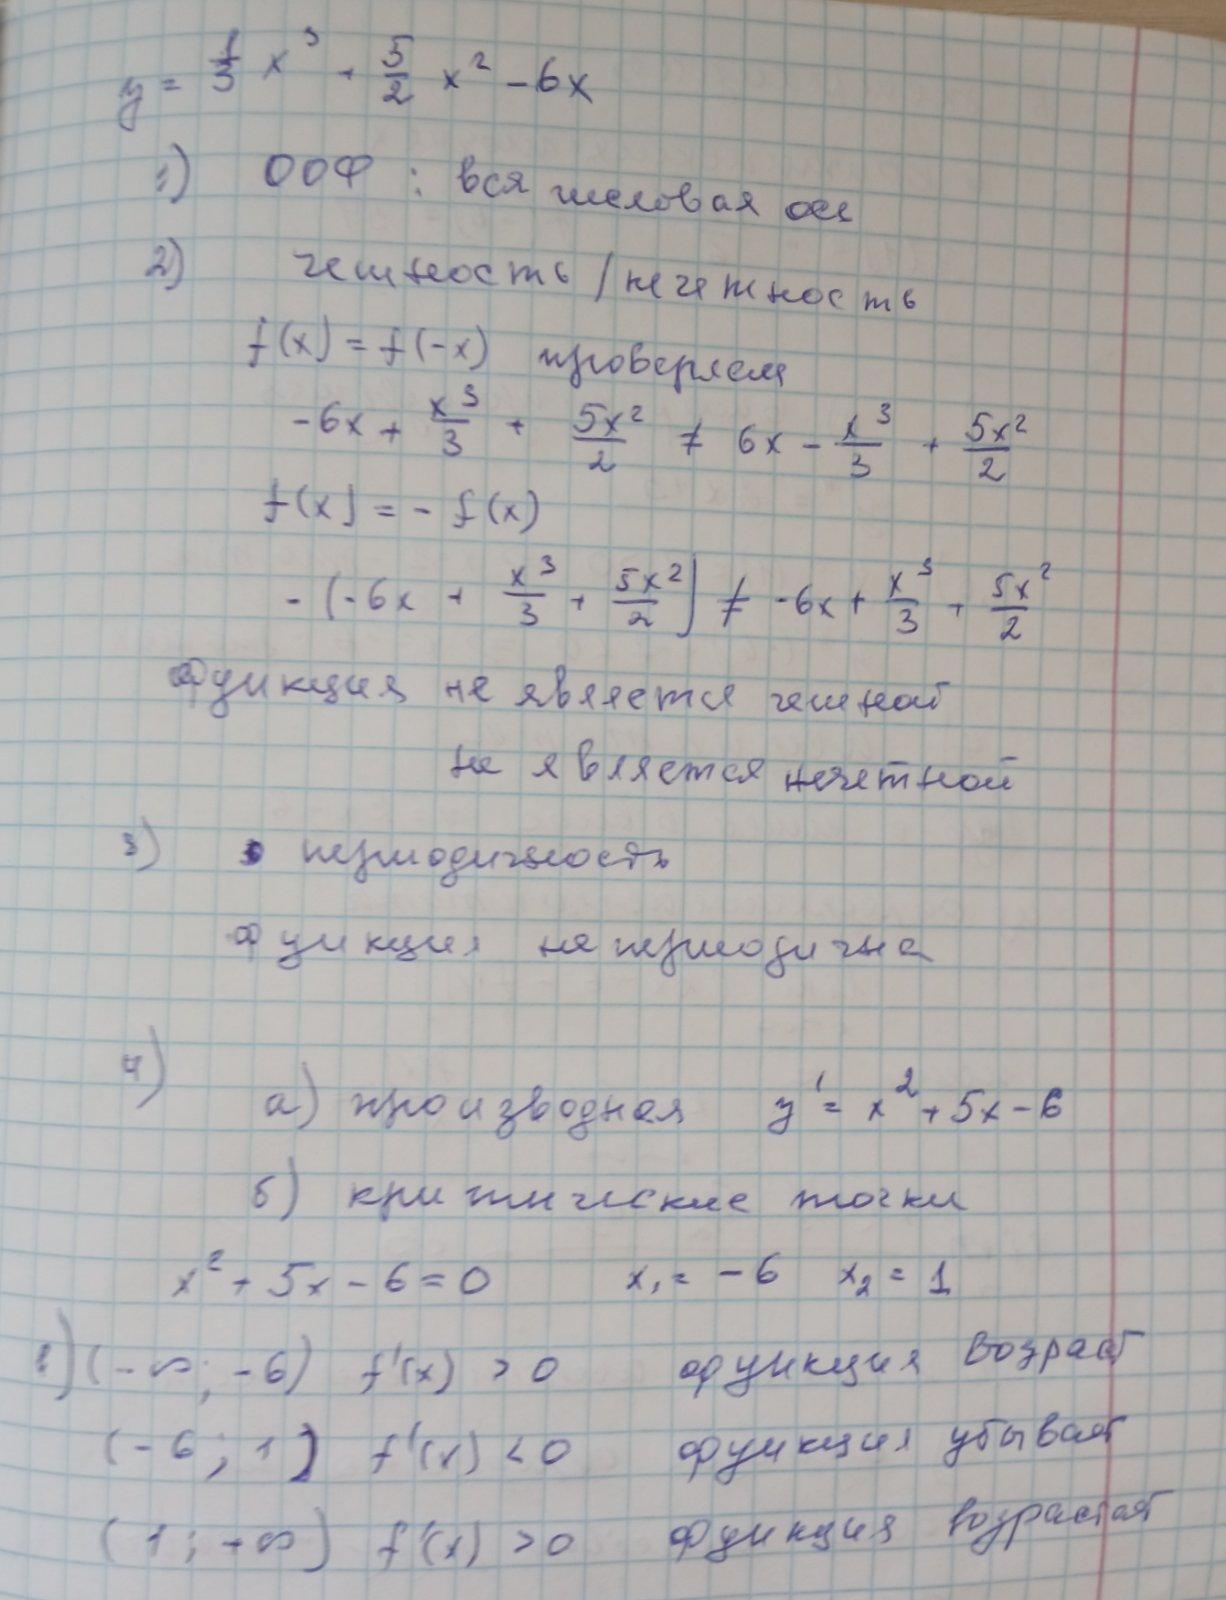 y = 1/3 x³ + 5/2 x² - 6x
1) ООФ : вся числовая ось
2) четность / нечетность
f(x) = f(-x) проверяем
-6x + x³/3 + 5x²/2 ≠ 6x - x³/3 + 5x²/2
f(x) = - f(x)
- (-6x + x³/3 + 5x²/2) ≠ -6x + x³/3 + 5x²/2
функция не является четной
не является нечетной
3) периодичность
функция не периодична
4) а) производная y' = x² + 5x - 6
б) критические точки
x² + 5x - 6 = 0 x₁ = -6 x₂ = 1
1) (-∞; -6) f'(x) > 0 функция возраст
(-6; 1) f'(x) < 0 функция убывает
(1; +∞) f'(x) > 0 функция возрастает